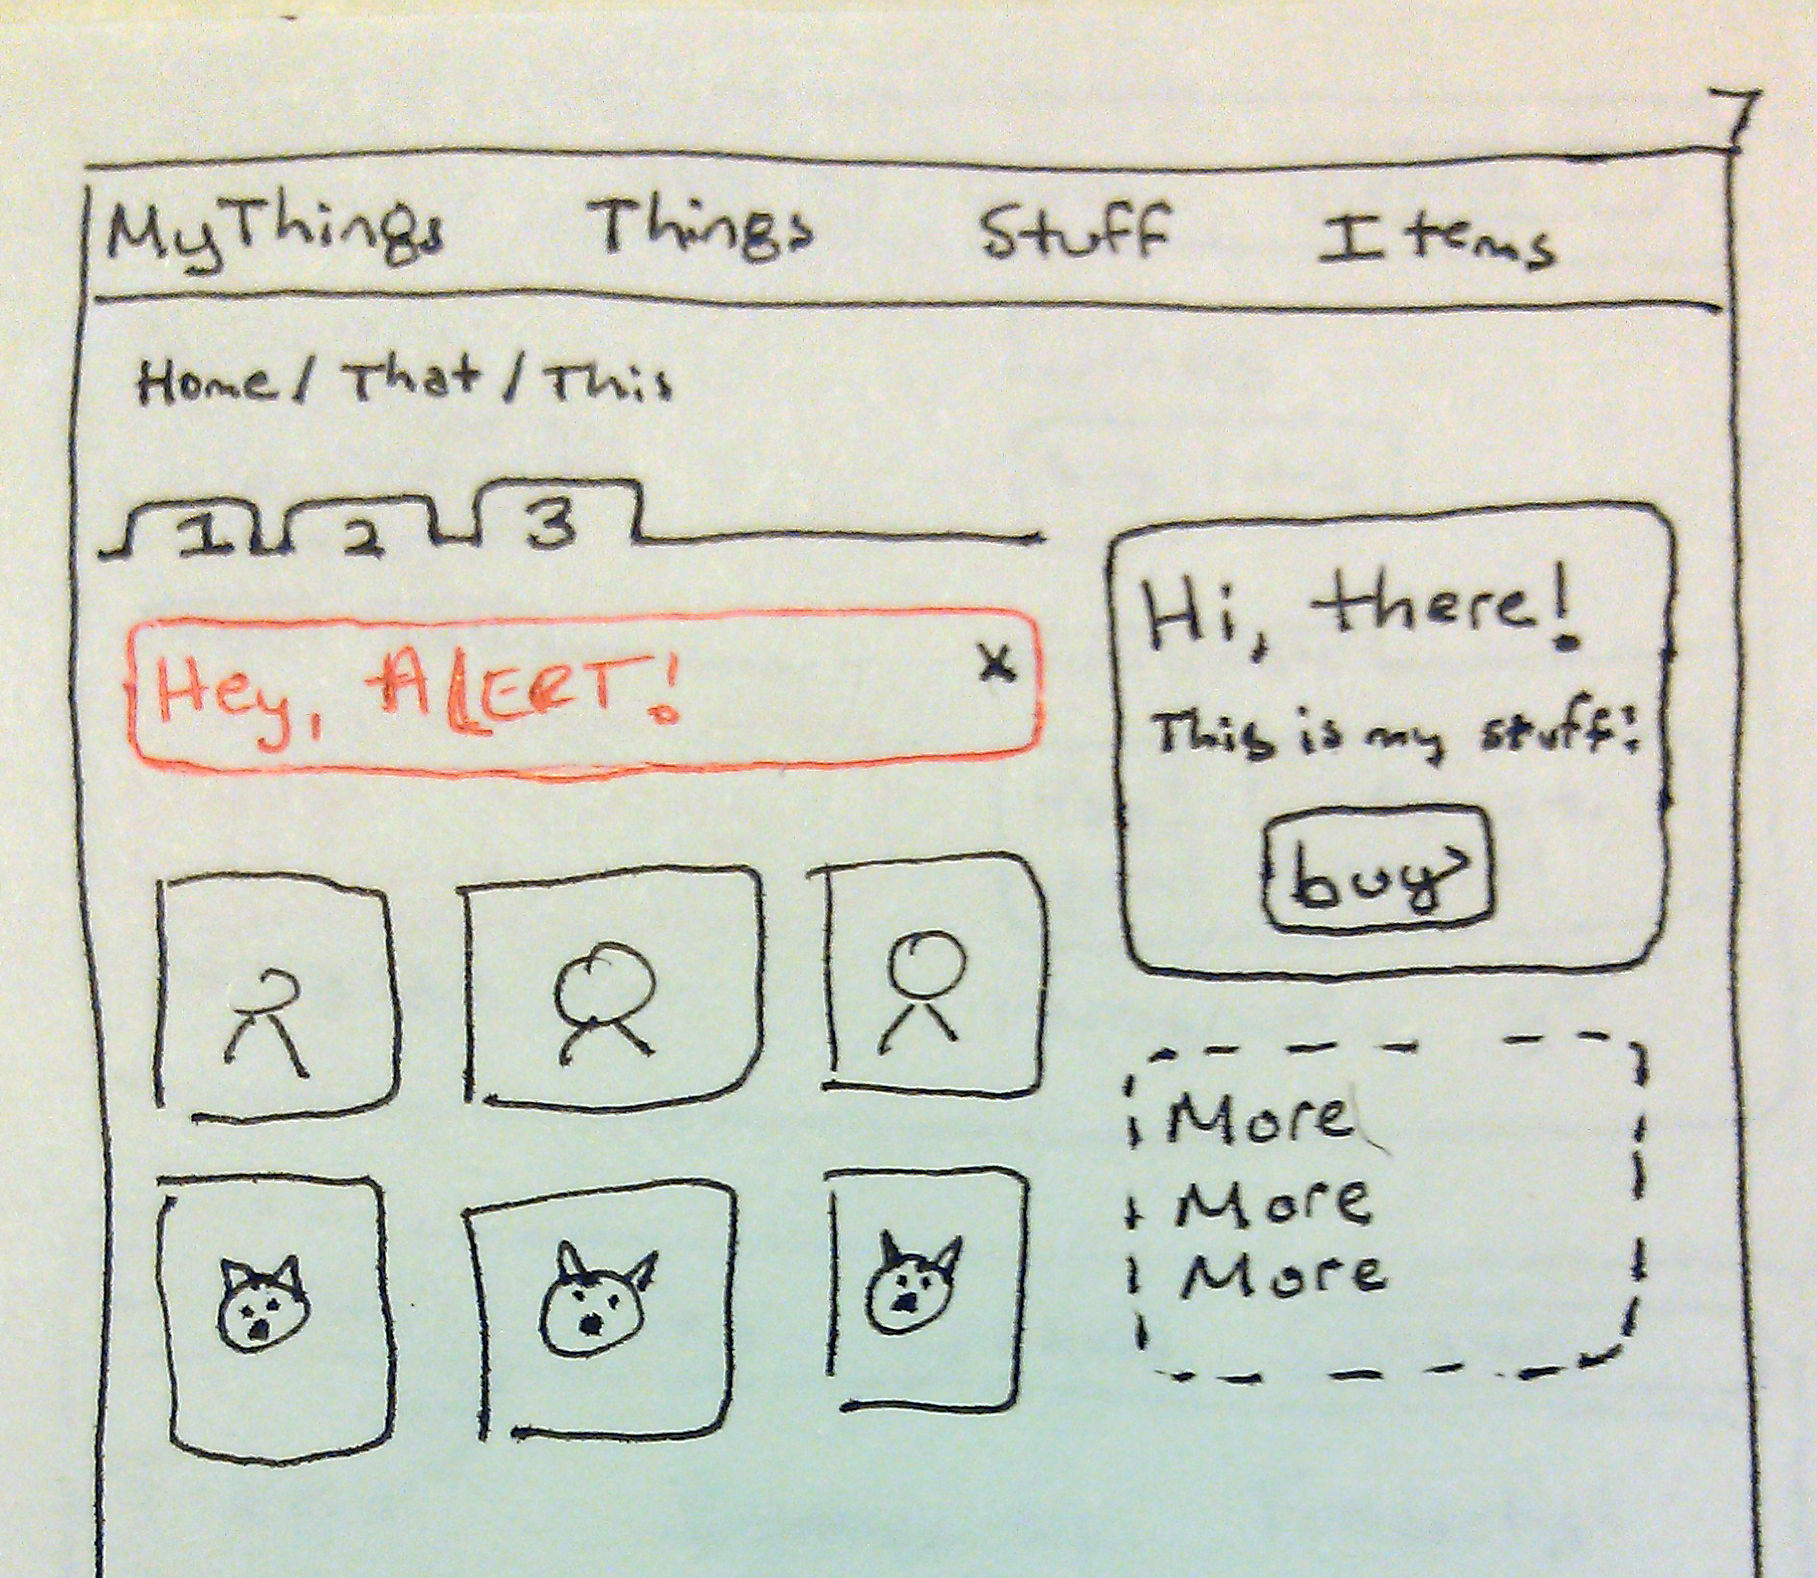 MyThings Things Stuff Items
Home / That / This
1 2 3
Hey, ALERT! x
Hi, there!
This is my stuff!
buy
More
More
More